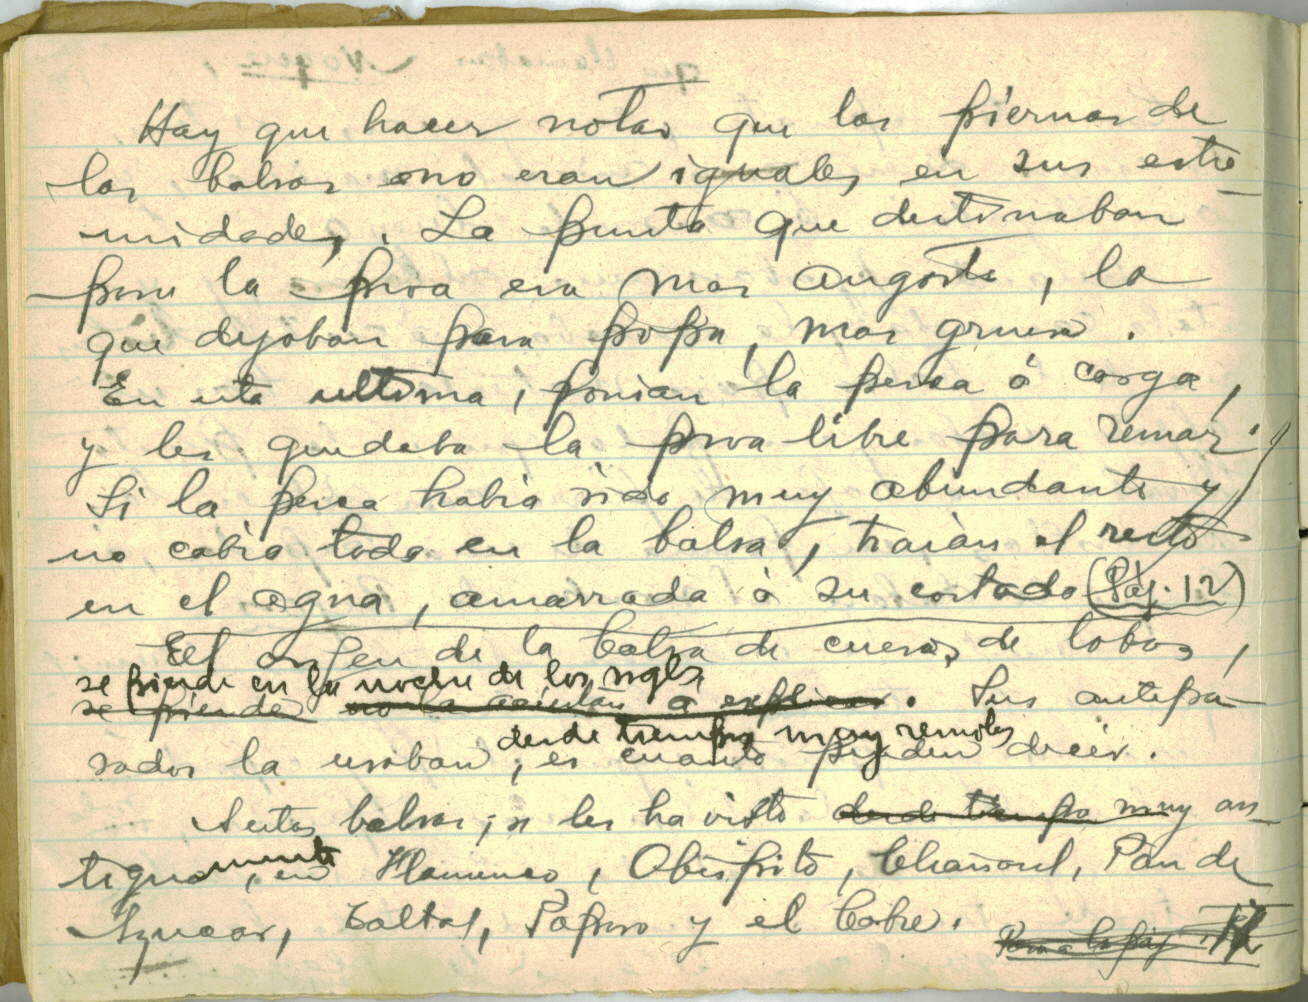 Hay que hacer notar que las piernas de
las balsas no eran iguales en sus estre-
midades. La punta que destinaban
para la proa era mas angosta, la
que dejaban para popa, mas gruesa.
En esta ultima, ponian la pesca ó carga,
y les quedaba la proa libre para remar.
Si la pesca habia sido muy abundante y
no cabia toda en la balsa, traian el resto
en el agua, amarrada á su costado (Páj. 12)
El origen de la balsa de cueros de lobos,
se pierde en la noche de los siglos
se pierde no la aciertan a esplicar. Sus antepa-
desde tiempos muy remotos
sados la usaban, es cuanto pueden decir.
A estas balsas, se les ha visto desde tiempo muy an-
tiguamente, en Flamenco, Obispito, Chañaral, Pan de
Azucar, Taltal, Paposo y el Cobre.
Pasa a la páj. 12